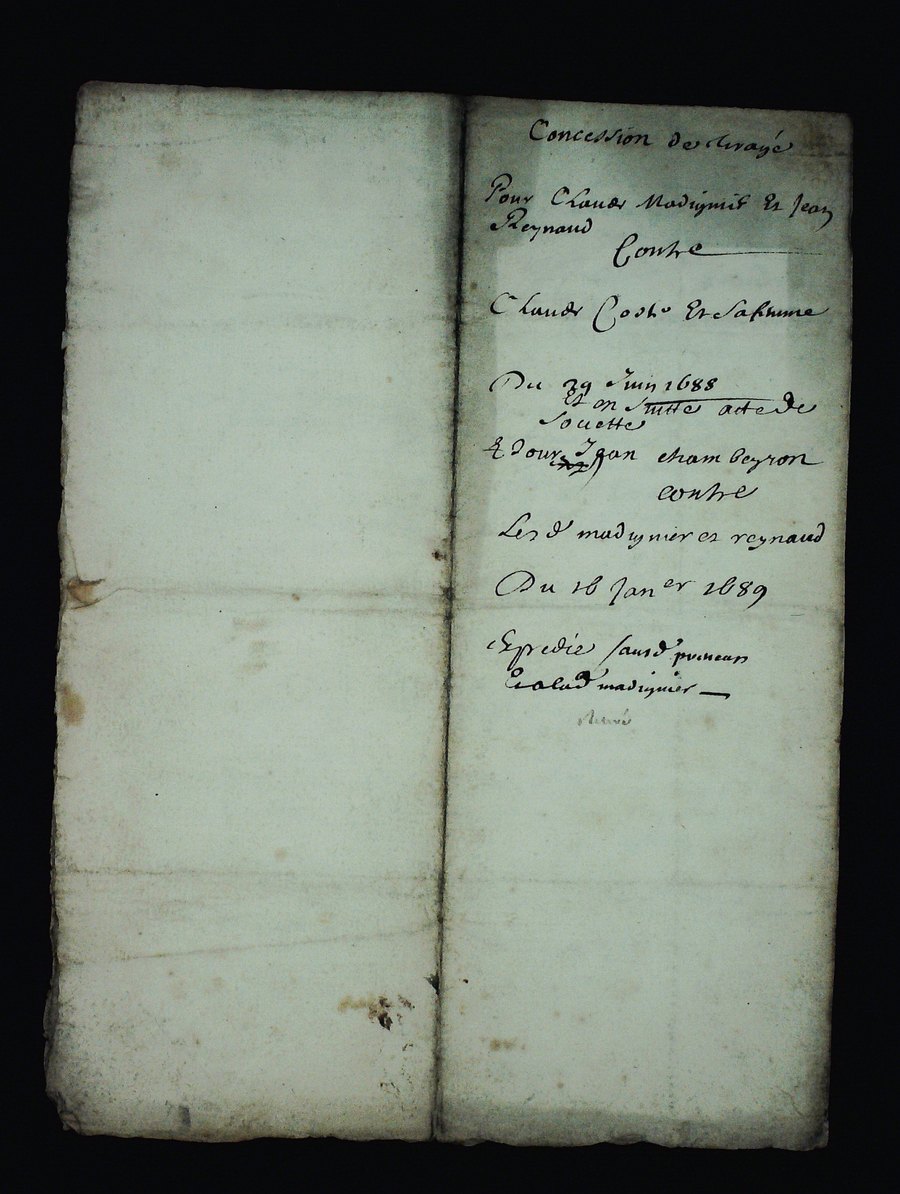 Concession de tirage
Pour Claude Madignier Et Jean
Reynaud
Contre
Claude Coste Et Safemme
Du 29 Juin 1688
Et en Suitte acte de
Et pour Jean chambeyron
contre
Lesd madignier et reynaud
Du 16 Janer 1689
Expedié
madignier